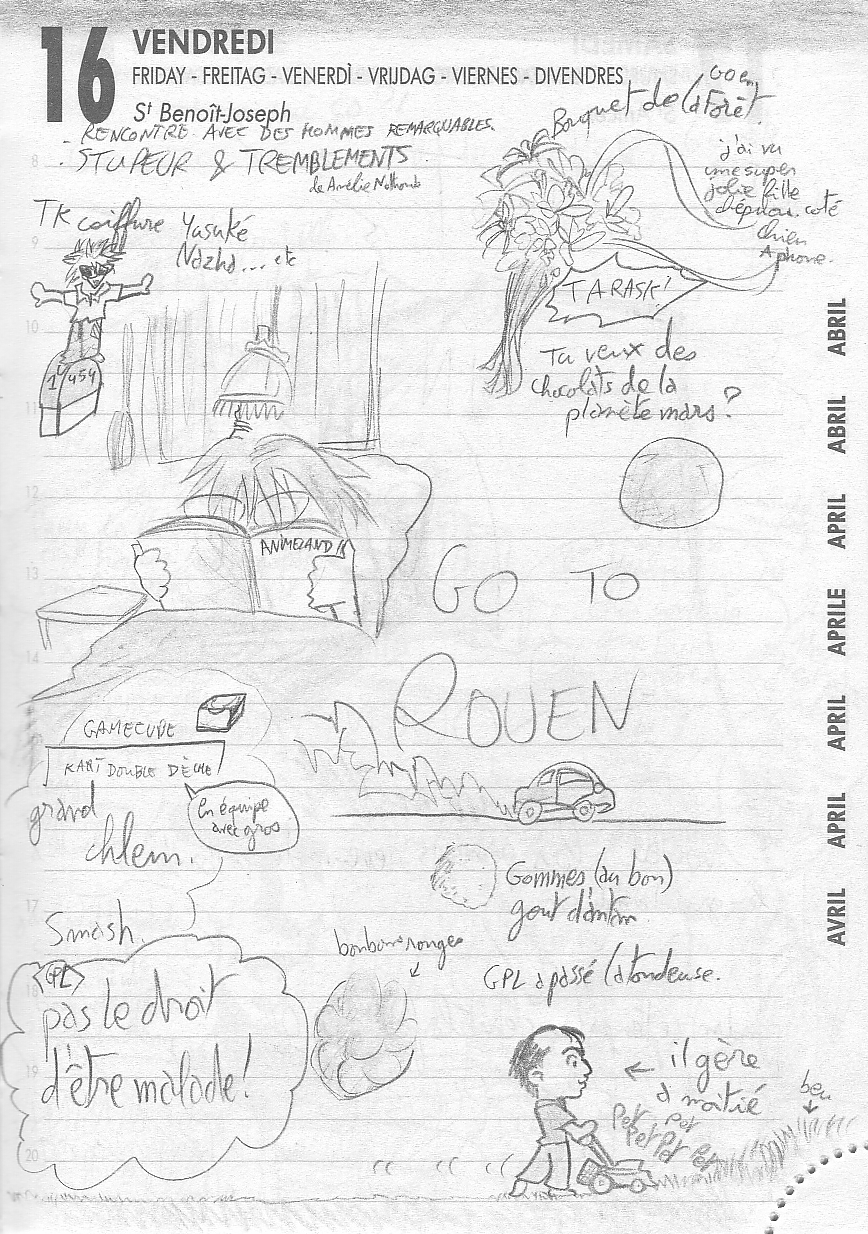 16
VENDREDI
FRIDAY - FREITAG - VENERDÌ - VRIJDAG - VIERNES - DIVENDRES
St Benoît-Joseph
- RENCONTRE AVEC DES HOMMES REMARQUABLES.
- STUPEUR & TREMBLEMENTS.
de Amélie Nothomb
Bouquet de la Forêt.
j'ai vu
une super
jolie fille
coté
chien
Aphone.
TK coiffure
Yasuké
Nazha... etc
TARASK!
1454
Tu veux des
chocolats de la
planète mars?
8
9
10
11
12
13
14
17
19
20
ANIMELAND
GO TO
ROUEN
GAMECUBE
KART DOUBLE DÈCHE
En équipe
avec gros
grand
chlem.
Smash.
Gommes (au bon)
gout d'antan
bonbons rouges
GPL a passé la tondeuse.
GPL
pas le droit
d'être malade!
il gère
a moitié
beu
Pet Pet
Pet Pet Pet Pet
ABRIL
ABRIL
APRIL
APRILE
APRIL
APRIL
AVRIL